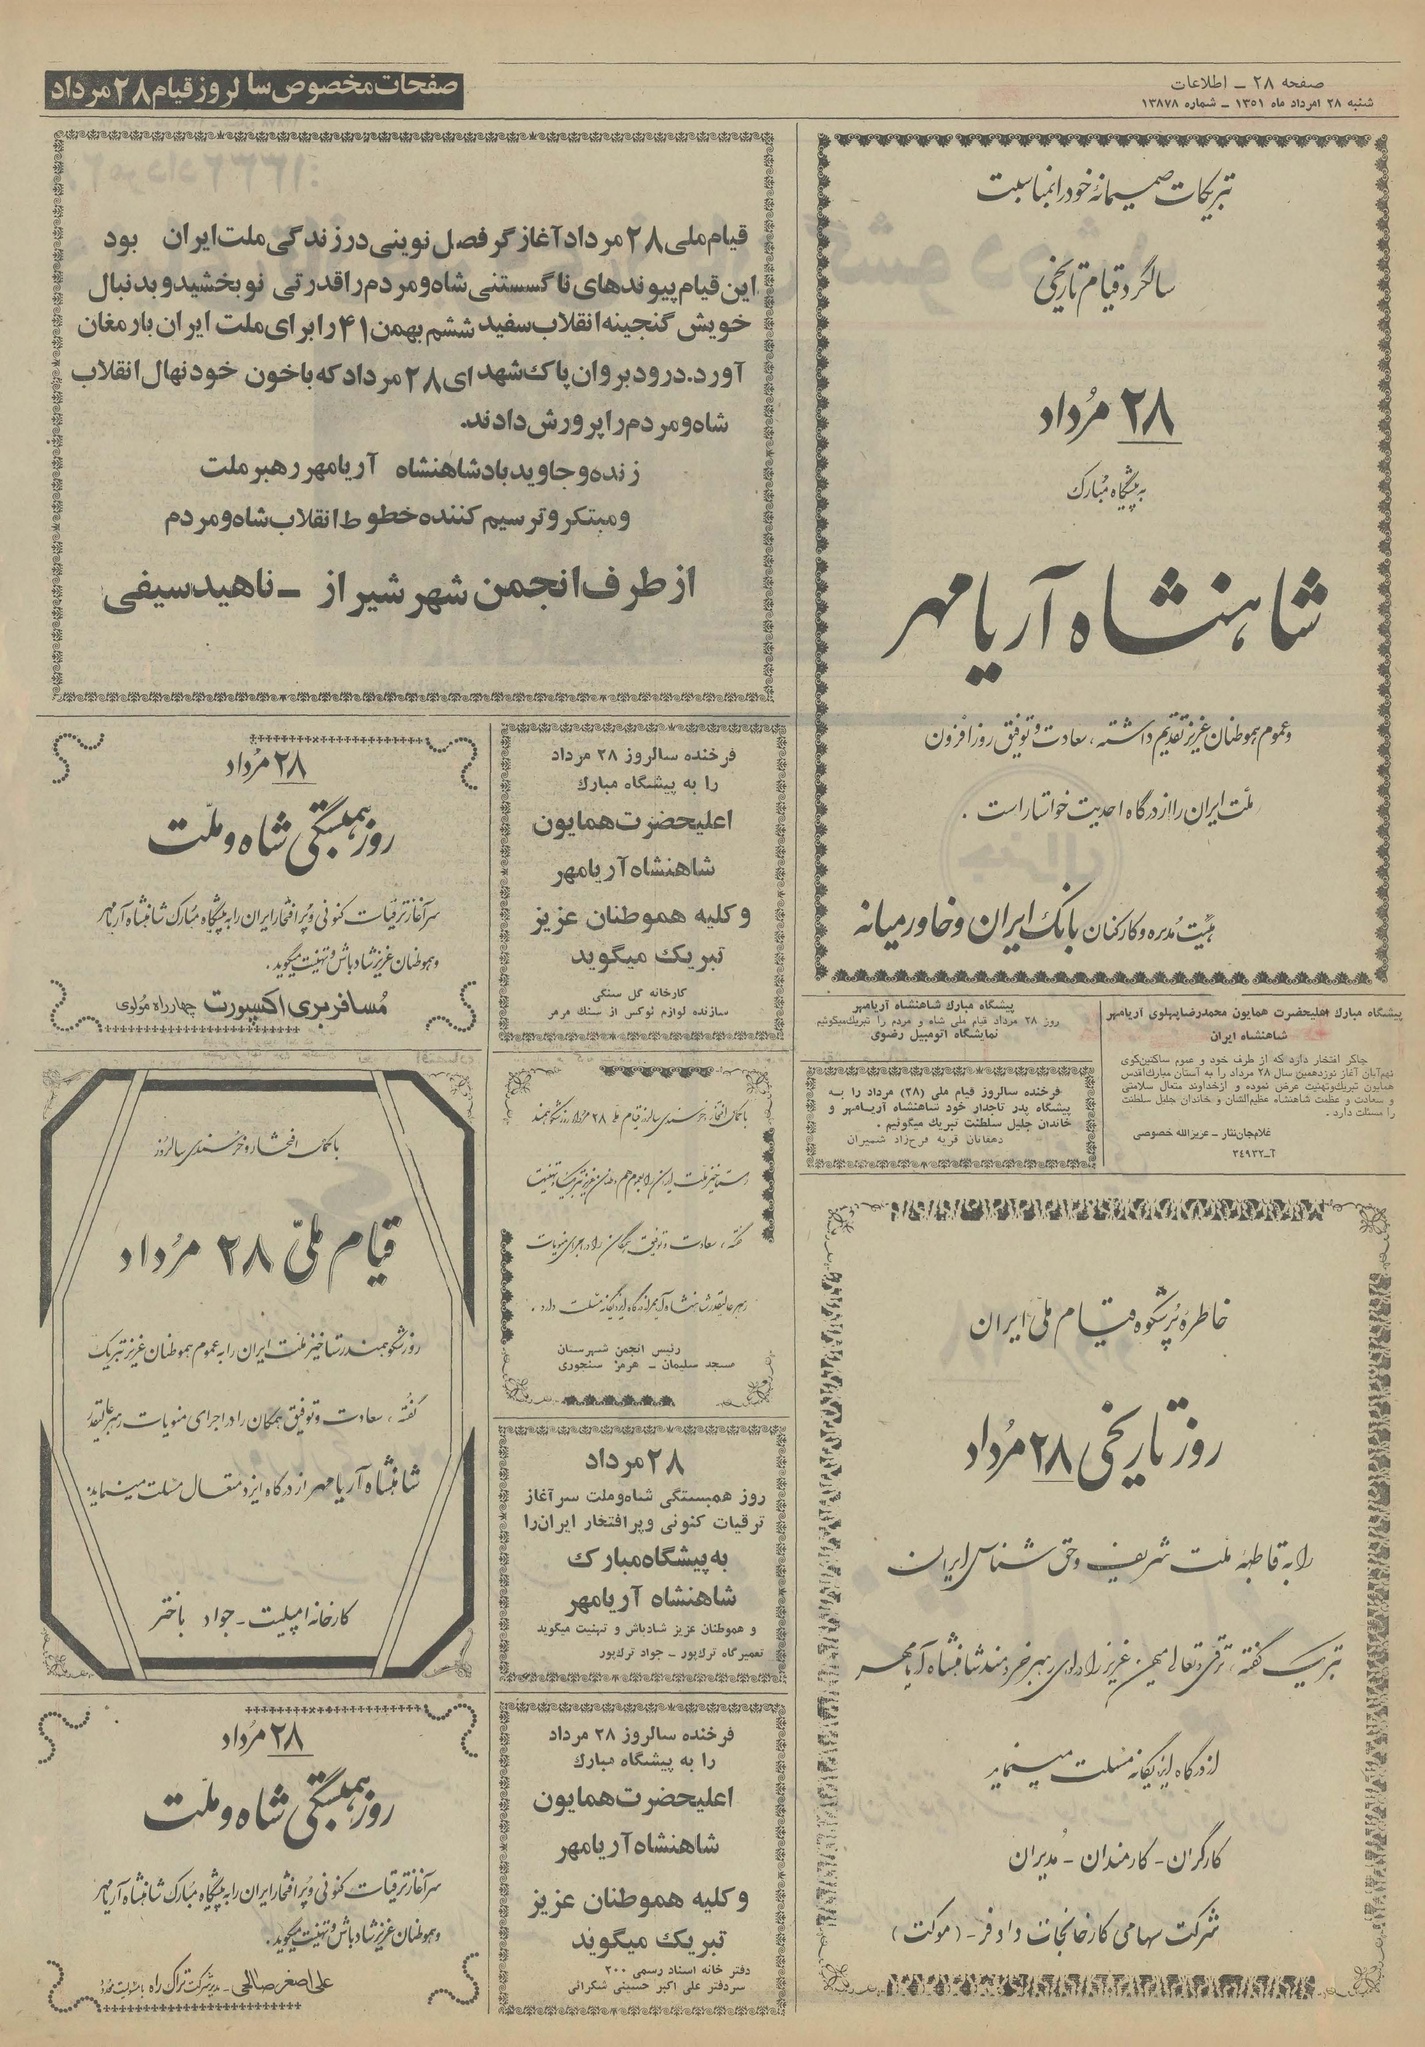 صفحه ۲۸ ـ اطلاعات
شنبه ۲۸ امرداد ماه ۱۳۵۱ ـ شماره ۱۳۸۷۸
صفحات مخصوص سالروز قیام ۲۸ مرداد
تبریکات صمیمانهٔ خود را بمناسبت
سالگرد قیام تاریخی
۲۸ مُرداد
به پیشگاه مُبارک
شاهنشاه آریامهر
و عموم هموطنان عزیز تقدیم داشته، سعادت و توفیق روزافزون
ملّت ایران را از درگاه احدیت خواستار است .
هیئت مُدیره و کارکنان بانک ایران و خاورمیانه
قیام ملی ۲۸ مرداد آغازگر فصل نوینی در زندگی ملت ایران بود
این قیام پیوندهای ناگسستنی شاه و مردم را قدرتی نو بخشید و بدنبال
خویش گنجینه انقلاب سفید ششم بهمن ۴۱ را برای ملت ایران بارمغان
آورد. درود بروان پاک شهدای ۲۸ مرداد که با خون خود نهال انقلاب
شاه و مردم را پرورش دادند.
زنده و جاوید باد شاهنشاه آریامهر رهبر ملت
و مبتکر و ترسیم کننده خطوط انقلاب شاه و مردم
از طرف انجمن شهر شیراز ـ ناهید سیفی
فرخنده سالروز ۲۸ مرداد
را به پیشگاه مبارك
اعلیحضرت همایون
شاهنشاه آریامهر
و کلیه هموطنان عزیز
تبریک میگوید
کارخانه گل سنگی
سازنده لوازم لوکس از سنگ مرمر
۲۸ مُرداد
روز همبستگی شاه و ملّت
سرآغاز ترقیات کنونی و پُر افتخار ایران را به پیشگاه مُبارک شاهنشاه آریامهر
و هموطنان عزیز شادباش و تهنیت میگوید.
مُسافربری اکسپورت چهارراه مولوی
پیشگاه مبارك اعلیحضرت همایون محمدرضا پهلوی آریامهر
شاهنشاه ایران
چاکر افتخار دارد که از طرف خود و عموم ساکنین کوی
نهم آبان آغاز نوزدهمین سال ۲۸ مرداد را به آستان مبارك اقدس
همایون تبریک و تهنیت عرض نموده و از خداوند متعال سلامتی
و سعادت و عظمت شاهنشاه عظیم الشان و خاندان جلیل سلطنت
را مسئلت دارد .
غلام جان نثار ـ عزیزالله خصوصی
آ ـ ۳۴۹۳۲
پیشگاه مبارك شاهنشاه آریامهر
روز ۲۸ مرداد قیام ملی شاه و مردم را تبریک میگوئیم
نمایشگاه اتومبیل رضوی
فرخنده سالروز قیام ملی (۲۸) مرداد را به
پیشگاه پدر تاجدار خود شاهنشاه آریامهر و
خاندان جلیل سلطنت تبریك میگوئیم .
دهقانان قریه فرحزاد شمیران
با کمال افتخار و خرسندی سالروز قیام ملی ۲۸ مرداد روز شکوهمند
رستاخیز ملت ایران را بعموم هموطنان عزیز تبریک و تهنیت
گفته، سعادت و توفیق همگان را در اجرای منویات
رهبر عالیقدر شاهنشاه آریامهر از درگاه ایزد یگانه مسئلت دارد .
رئیس انجمن شهرستان
مسجد سلیمان ـ هرمز سنجوری
با کمال افتخار و خُرسندی سالروز
قیام ملّی ۲۸ مرُداد
روز شکوهمند رستاخیز ملّت ایران را به عموم هموطنان عزیز تبریک
گفته ، سعادت و توفیق همگان را در اجرای منویات رهبر عالیقدر
شاهنشاه آریامهر از درگاه ایزد متعال مسئلت مینماید:
کارخانه امپلیت ـ جواد باختر
خاطرهٔ پُرشکوه قیام ملّی ایران
روز تاریخی ۲۸ مُرداد
را به قاطبهٔ ملّت شریف و حق شناس ایران
تبریک گفته ، ترقی و تعالی میهن عزیز را در لوای رهبر خردمند شاهنشاه آریامهر
از درگاه ایزد یگانه مسئلت مینماید
کارگران ـ کارمندان ـ مُدیران
شرکت سهامی کارخانجات دادفر ـ (موکت)
۲۸ مرداد
روز همبستگی شاه و ملت سرآغاز
ترقیات کنونی و پر افتخار ایران را
به پیشگاه مبارک
شاهنشاه آریامهر
و هموطنان عزیز شادباش و تهنیت میگوید
تعمیرگاه ترك پور ـ جواد ترك پور
فرخنده سالروز ۲۸ مرداد
را به پیشگاه مبارك
اعلیحضرت همایون
شاهنشاه آریامهر
و کلیه هموطنان عزیز
تبریک میگوید
دفتر خانه اسناد رسمی ۲۰۰
سردفتر علی اکبر حسینی شکرائی
۲۸ مُرداد
روز همبستگی شاه و ملّت
سرآغاز ترقیات کنونی و پُر افتخار ایران را به پیشگاه مُبارک شاهنشاه آریامهر
و هموطنان عزیز شادباش و تهنیت میگوید.
علی اصغر صالحی ـ مدیر شرکت تراک راه با مسئولیت محدود